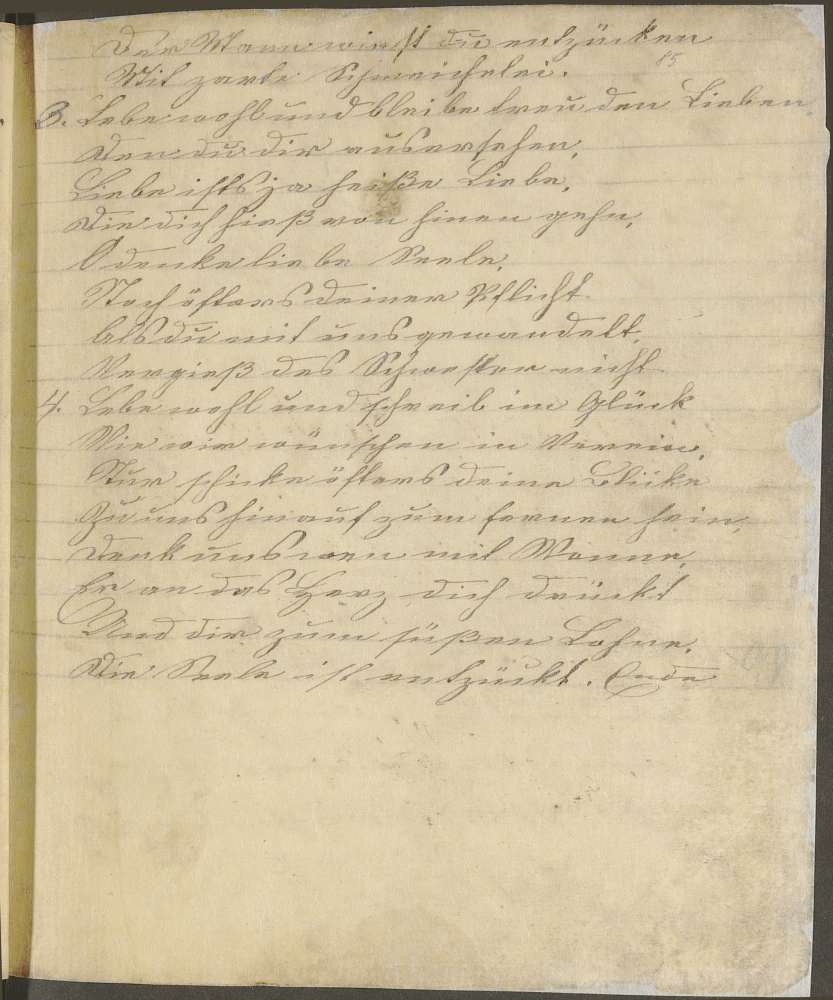 Der Mann wirst du entzücken
85
Mit zarte Schmeichelei.
3. Lebe wohl und bleibe treu den Lieben,
Den du dir ausersehen,
Liebe ists ja heiße Liebe,
Die dich hieß von hinen gehn,
O denke liebe Seele,
Noch öfters deiner Pflicht
Als du mit uns gewandelt,
Vergieß des Schwester nicht
4. Lebe wohl und im Glück
Wie wir wünschen in Verein,
Nur schicke öfters deine Blicke
Zu uns hinauf zum fernen hein,
Denk uns wen mit Wonne,
Er an das Herz dich drückt
Und dir zum süßen Lohne,
Die Seele ist entzückt. Ende